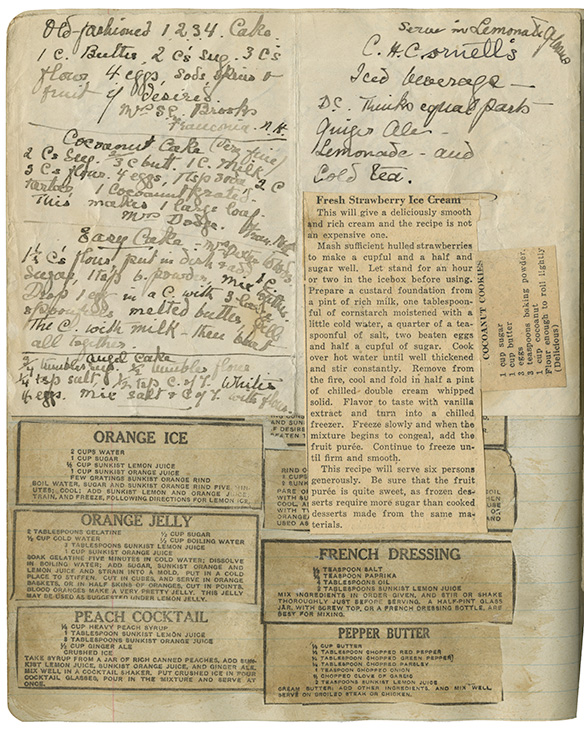 Old-fashioned 1 2 3 4. Cake.
1 C. Butter, 2 C's Sug. 3 C's
flour 4 eggs, Soda
fruit if desired.
Mrs Brooks
Franconia. N.H.
Cocoanut Cake (Very fine)
2 Cs Sug. 2/3 C butt. 1 C. Milk
3 Cs flour. 4 eggs, 1 tsp soda, 2 C
1 Cocoanut grated.
This makes 1 large loaf.
Mrs Dodge.
Easy Cake
1 1/2 Cs flour put in dish add 1 C
Sugar, 1 tsp b. powder, mix together
Drop 1 egg in a C. with 3 large
spoonfuls melted butter, fill
the C. with milk - then beat
all together.
Angel Cake
3/4 tumbler sug. 1/2 tumbler flour
1/4 tsp salt 1/2 tsp C. of T. Whites
6 eggs. mix salt & C of T. with flour.
Serve in Lemonade glasses
C. H. Cornell's
Iced beverage -
D.C. Thinks equal parts
Ginger Ale -
Lemonade - and
Cold Tea.
Fresh Strawberry Ice Cream
This will give a deliciously smooth
and rich cream and the recipe is not
an expensive one.
Mash sufficient hulled strawberries
to make a cupful and a half and
sugar well. Let stand for an hour
or two in the icebox before using.
Prepare a custard foundation from
a pint of rich milk, one tablespoon-
ful of cornstarch moistened with a
little cold water, a quarter of a tea-
spoonful of salt, two beaten eggs
and half a cupful of sugar. Cook
over hot water until well thickened
and stir constantly. Remove from
the fire, cool and fold in half a pint
of chilled double cream whipped
solid. Flavor to taste with vanilla
extract and turn into a chilled
freezer. Freeze slowly and when the
mixture begins to congeal, add the
fruit purée. Continue to freeze un-
til firm and smooth.
This recipe will serve six persons
generously. Be sure that the fruit
purée is quite sweet, as frozen des-
serts require more sugar than cooked
desserts made from the same ma-
terials.
COCOANUT COOKIES
1 cup sugar
1 cup butter
3 eggs
3 teaspoons baking powder,
1 cup cocoanut
Flour enough to roll lightly
(Delicious)
ORANGE ICE
2 CUPS WATER
1 CUP SUGAR
1/4 CUP SUNKIST LEMON JUICE
1 CUP SUNKIST ORANGE JUICE
FEW GRATINGS SUNKIST ORANGE RIND
BOIL WATER, SUGAR AND ORANGE RIND FIVE MIN-
UTES; COOL; ADD SUNKIST LEMON AND ORANGE JUICE,
TRAIN, AND FREEZE, FOLLOWING DIRECTIONS FOR LEMON ICE.
ORANGE JELLY
2 TABLESPOONS GELATINE 1/2 CUP SUGAR
1/2 CUP COLD WATER 1/2 CUP BOILING WATER
3 TABLESPOONS SUNKIST LEMON JUICE
1 CUP SUNKIST ORANGE JUICE
SOAK GELATINE FIVE MINUTES IN COLD WATER; DISSOLVE
IN BOILING WATER; ADD SUGAR, SUNKIST ORANGE AND
LEMON JUICE AND STRAIN INTO A MOLD. PUT IN A COLD
PLACE TO STIFFEN. CUT IN CUBES, AND SERVE IN ORANGE
BASKETS, OR IN HALF SKINS OF ORANGES, CUT IN POINTS.
BLOOD ORANGES MAKE A VERY PRETTY JELLY. THIS JELLY
MAY BE USED AS SUGGESTED UNDER LEMON JELLY.
PEACH COCKTAIL
1/2 CUP HEAVY PEACH SYRUP
1 TABLESPOON SUNKIST LEMON JUICE
2 TABLESPOONS SUNKIST ORANGE JUICE
1/2 CUP GINGER ALE
CRUSHED ICE
TAKE SYRUP FROM A JAR OF RICH CANNED PEACHES, ADD SUN-
KIST LEMON JUICE, SUNKIST ORANGE JUICE, AND GINGER ALE.
MIX WELL IN A COCKTAIL SHAKER. PUT CRUSHED ICE IN FOUR
COCKTAIL GLASSES, POUR IN THE MIXTURE AND SERVE AT
ONCE.
FRENCH DRESSING
TEASPOON SALT
TEASPOON PAPRIKA
TABLESPOONS OIL
TABLESPOONS SUNKIST LEMON JUICE
MIX INGREDIENTS IN ORDER GIVEN, AND STIR OR SHAKE
THOROUGHLY JUST BEFORE SERVING. A HALF-PINT GLASS
JAR, WITH SCREW TOP, OR A FRENCH DRESSING BOTTLE, ARE
BEST FOR MIXING.
PEPPER BUTTER
1/4 CUP BUTTER
TABLESPOON CHOPPED RED PEPPER
TABLESPOON CHOPPED GREEN PEPPER
TABLESPOON CHOPPED PARSLEY
1 TEASPOON CHOPPED ONION
CHOPPED CLOVE OF GARLIC
2 TEASPOONS SUNKIST LEMON JUICE
CREAM BUTTER; ADD OTHER INGREDIENTS, AND MIX WELL.
SERVE ON BROILED STEAK OR CHICKEN.